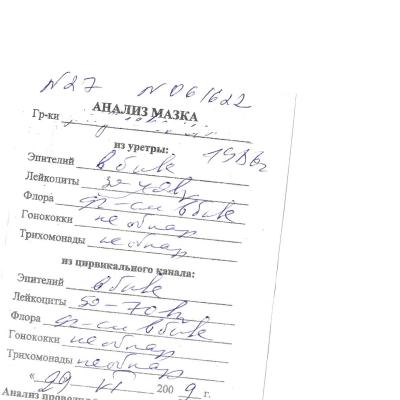 N27 N 061622
АНАЛИЗ МАЗКА
Гр-ки
из уретры:
1986г
Эпителий в б кол
Лейкоциты 30-40
Флора см в б кол
Гонококки не обнар
Трихомонады не обнар
из цирвикального канала:
Эпителий в б кол
Лейкоциты 50-70
Флора см в б кол
Гонококки не обнар
Трихомонады не обнар
« 29 » 200 9 г.
Анализ